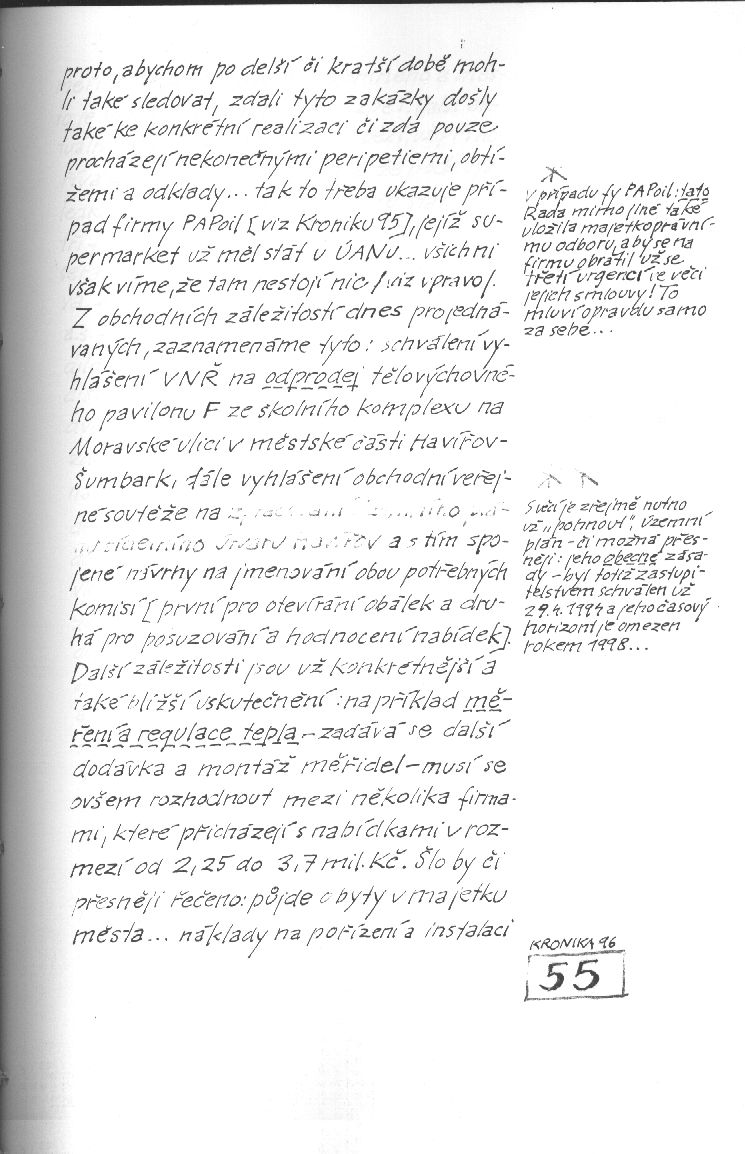 proto, abychom po delší či kratší době moh-
li také sledovat, zdali tyto zakázky došly
také ke konkrétní realizaci či zda pouze
procházejí nekonečnými peripetiemi, obtí-
žemi a odklady... tak to třeba ukazuje pří-
pad firmy PAPoil [viz Kroniku 95], jejíž su-
permarket už měl stát u ÚANu... všichni
však víme, že tam nestojí nic /viz vpravo/.
Z obchodních záležitostí dnes projedná-
vaných, zaznamenáme tyto: schválení vy-
hlášení VNŘ na odprodej tělovýchovné-
ho pavilonu F ze školního komplexu na
Moravské ulici v městské části Havířov-
Šumbark, dále vyhlášení obchodní veřej-
né soutěže na
útvaru Havířov a s tím spo-
jené návrhy na jmenování obou potřebných
komisí [první pro otevírání obálek a dru-
há pro posuzování a hodnocení nabídek].
Další záležitosti jsou už konkrétnější a
také bližší uskutečnění: na příklad mě-
ření a regulace tepla - zadává se další
dodávka a montáž měřidel - musí se
ovšem rozhodnout mezi několika firma-
mi, které přicházejí s nabídkami v roz-
mezí od 2,25 do 3,7 mil. Kč. Šlo by či
přesněji řečeno: půjde o byty v majetku
města... náklady na pořízení a instalaci
V případu fy PAPoil: tato
Rada mimo jiné také
uložila majetkoprávní-
mu odboru, aby se na
firmu obrátil už se
třetí urgencí ve věci
jejich smlouvy! To
mluví opravdu samo
za sebe...
S věcí je zřejmě nutno
už „pohnout", územní
plán - či možná přes-
něji: jeho obecné zása-
dy - byl totiž zastupi-
telstvem schválen už
29.4.1994 a jeho časový
horizont je omezen
rokem 1998...
KRONIKA 96
55